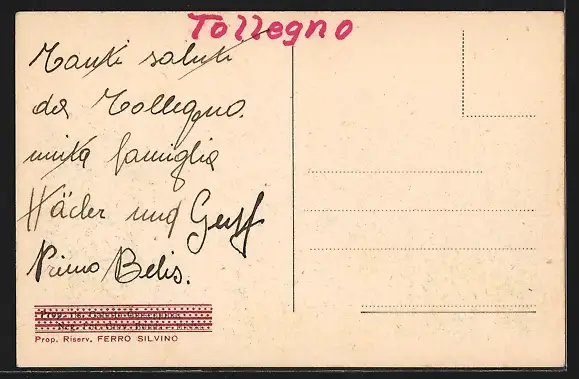 Tollegno
Tanti saluti
da Tollegno.
unita famiglia
Häder und
Primo Belis.
Prop. Riserv. FERRO SILVINO